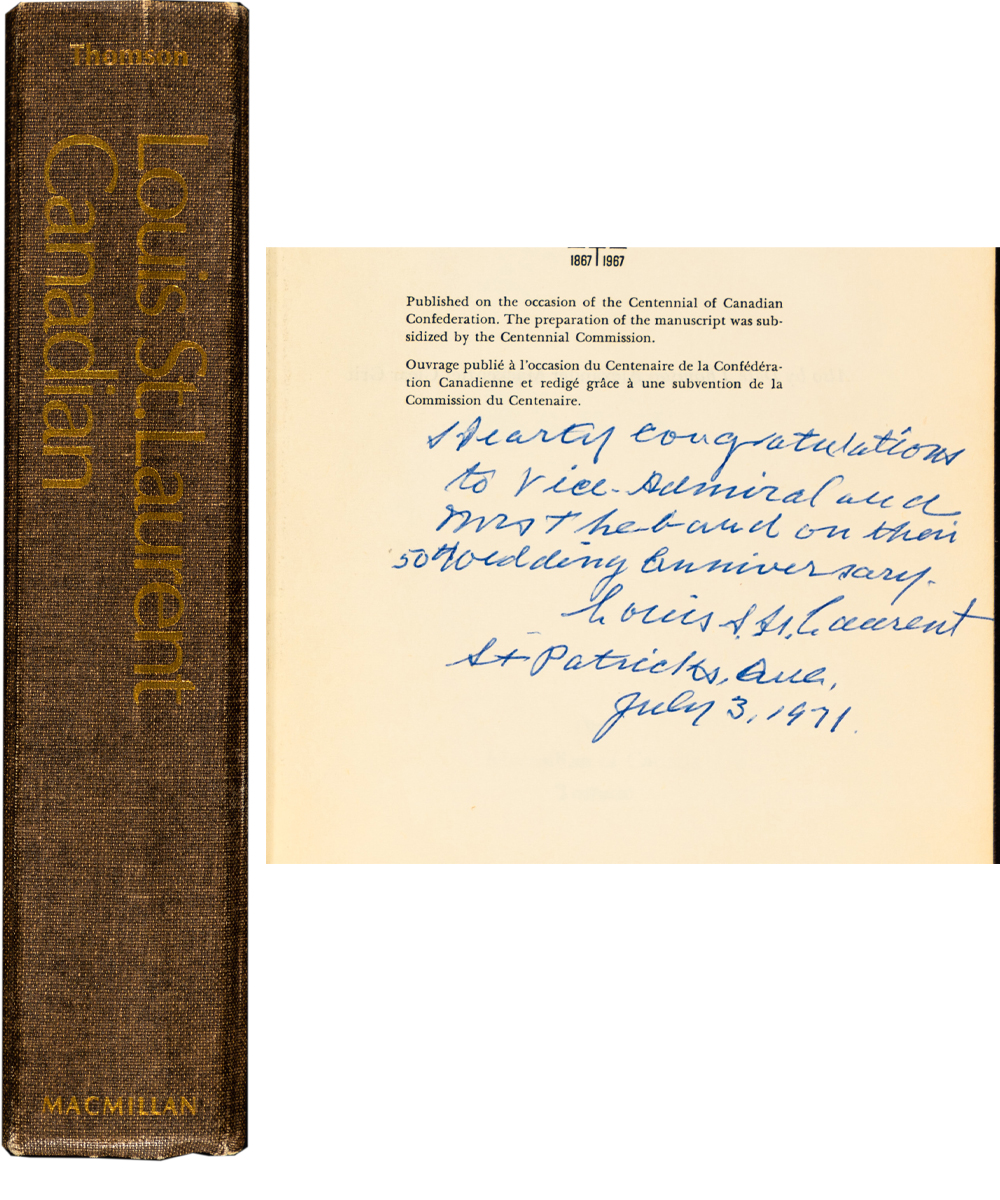 Thomson
Louis St. Laurent
Canadian
MACMILLAN
1867 1967
Published on the occasion of the Centennial of Canadian
Confederation. The preparation of the manuscript was sub-
sidized by the Centennial Commission.
Ouvrage publié à l'occasion du Centenaire de la Confédéra-
tion Canadienne et redigé grâce à une subvention de la
Commission du Centenaire.
Hearty congratulations
to Vice-Admiral and
Mrs Thebaud on their
50th Wedding Anniversary.
Louis S. St. Laurent
St Patricks, Que,
July 3, 1971.